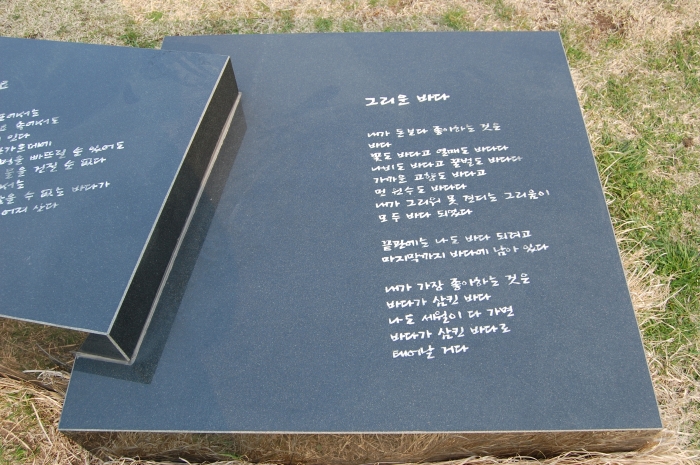 속에서도
있다
빠뜨릴 순 있어도
건질 순 없다
수 없는 바다가
그리운 바다
내가 돈보다 좋아하는 것은
바다
꽃도 바다고 열매도 바다다
나비도 바다고 꿀벌도 바다다
가까운 고향도 바다고
먼 원수도 바다다
내가 그리워 못 견디는 그리움이
모두 바다 되었다
끝판에는 나도 바다 되려고
마지막까지 바다에 남아 있다
내가 가장 좋아하는 것은
바다가 삼킨 바다
나도 세월이 다 가면
바다가 삼킨 바다로
태어날 거다